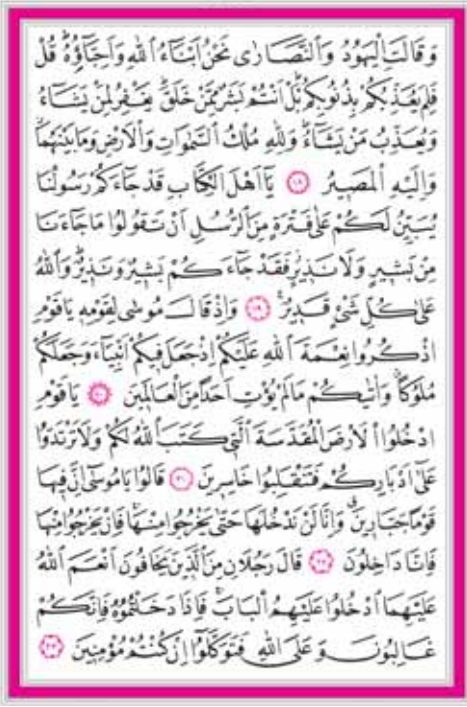 وَقَالَتِ الْيَهُودُ وَالنَّصَارٰى نَحْنُ اَبْنَٓاءُ اللّٰهِ وَاَحِبَّٓاؤُ۬هُۜ قُلْ
فَلِمَ يُعَذِّبُكُمْ بِذُنُوبِكُمْۜ بَلْ اَنْتُمْ بَشَرٌ مِمَّنْ خَلَقَۜ يَغْفِرُ لِمَنْ يَشَٓاءُ
وَيُعَذِّبُ مَنْ يَشَٓاءُۜ وَلِلّٰهِ مُلْكُ السَّمٰوَاتِ وَالْاَرْضِ وَمَا بَيْنَهُمَاۘ
وَاِلَيْهِ الْمَصٖيرُ ﴿١٨﴾ يَٓا اَهْلَ الْكِتَابِ قَدْ جَٓاءَكُمْ رَسُولُنَا
يُبَيِّنُ لَكُمْ عَلٰى فَتْرَةٍ مِنَ الرُّسُلِ اَنْ تَقُولُوا مَا جَٓاءَنَا
مِنْ بَشٖيرٍ وَلَا نَذٖيرٍۘ فَقَدْ جَٓاءَكُمْ بَشٖيرٌ وَنَذٖيرٌۜ وَاللّٰهُ
عَلٰى كُلِّ شَيْءٍ قَدٖيرٌ۟ ﴿١٩﴾ وَاِذْ قَالَ مُوسٰى لِقَوْمِهٖ يَا قَوْمِ
اذْكُرُوا نِعْمَةَ اللّٰهِ عَلَيْكُمْ اِذْ جَعَلَ فٖيكُمْ اَنْبِيَٓاءَ وَجَعَلَكُمْ
مُلُوكًاۗ وَاٰتٰيكُمْ مَا لَمْ يُؤْتِ اَحَدًا مِنَ الْعَالَمٖينَ ﴿٢٠﴾ يَا قَوْمِ
ادْخُلُوا الْاَرْضَ الْمُقَدَّسَةَ الَّتٖي كَتَبَ اللّٰهُ لَكُمْ وَلَا تَرْتَدُّوا
عَلٰٓى اَدْبَارِكُمْ فَتَنْقَلِبُوا خَاسِرٖينَ ﴿٢١﴾ قَالُوا يَا مُوسٰٓى اِنَّ فٖيهَا
قَوْمًا جَبَّارٖينَۗ وَاِنَّا لَنْ نَدْخُلَهَا حَتّٰى يَخْرُجُوا مِنْهَاۚ فَاِنْ يَخْرُجُوا مِنْهَا
فَاِنَّا دَاخِلُونَ ﴿٢٢﴾ قَالَ رَجُلَانِ مِنَ الَّذٖينَ يَخَافُونَ اَنْعَمَ اللّٰهُ
عَلَيْهِمَا ادْخُلُوا عَلَيْهِمُ الْبَابَۚ فَاِذَا دَخَلْتُمُوهُ فَاِنَّكُمْ
غَالِبُونَ وَعَلَى اللّٰهِ فَتَوَكَّلُٓوا اِنْ كُنْتُمْ مُؤْمِنٖينَ ﴿٢٣﴾